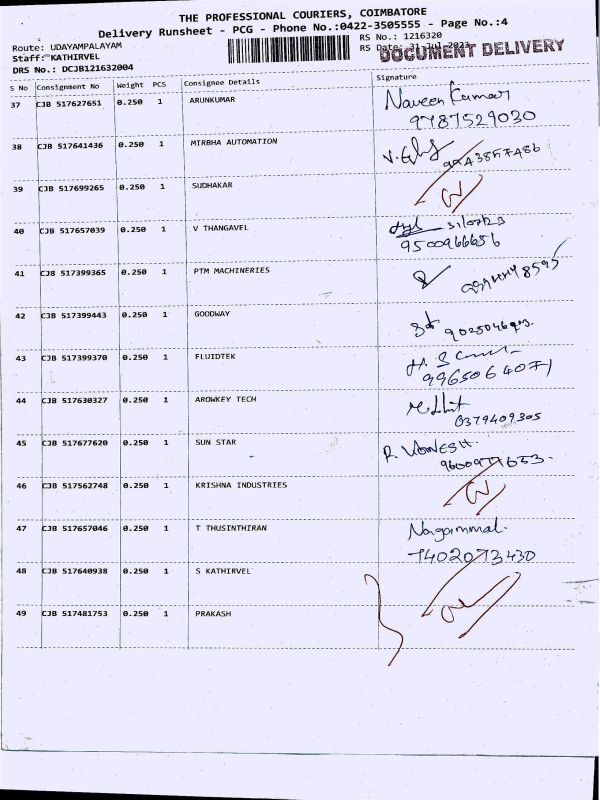 THE PROFESSIONAL COURIERS, COIMBATORE
Delivery Runsheet - PCG - Phone No.:0422-3505555 - Page No.:4
Route: UDAYAMPALAYAM RS No.: 1216320
Staff: KATHIRVEL RS Date: 31-Jul-2023
DOCUMENT DELIVERY
DRS No.: DCJB121632004
S No Consignment No Weight PCS Consignee Details Signature
37 CJB 517627651 0.250 1 ARUNKUMAR Naveen Kumar
9787529030
38 CJB 517641436 0.250 1 MIRBHA AUTOMATION
39 CJB 517699265 0.250 1 SUDHAKAR
40 CJB 517657039 0.250 1 V THANGAVEL 31/07/23
9500966656
41 CJB 517399365 0.250 1 PTM MACHINERIES
42 CJB 517399443 0.250 1 GOODWAY
43 CJB 517399370 0.250 1 FLUIDTEK
9965064071
44 CJB 517630327 0.250 1 AROWKEY TECH
0379409305
45 CJB 517677620 0.250 1 SUN STAR
46 CJB 517562748 0.250 1 KRISHNA INDUSTRIES
47 CJB 517657046 0.250 1 T THUSINTHIRAN Nagammal.
7402073430
48 CJB 517640938 0.250 1 S KATHIRVEL
49 CJB 517481753 0.250 1 PRAKASH